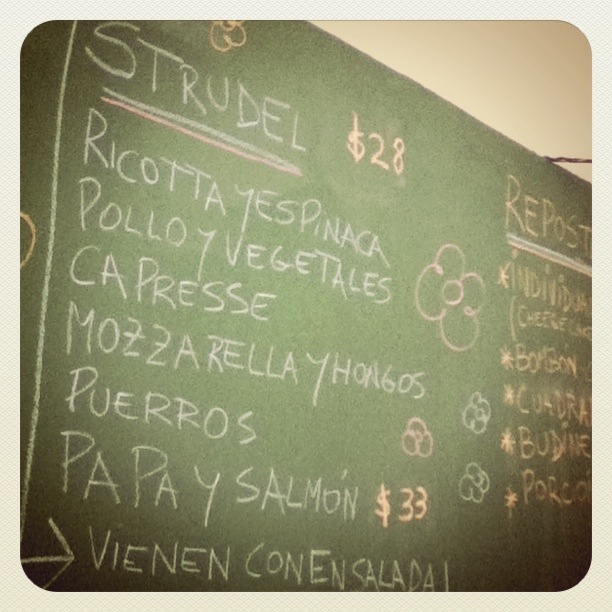 STRUDEL $28
RICOTTA Y ESPINACA
POLLO Y VEGETALES
CAPRESSE
MOZZARELLA Y HONGOS
PUERROS
PAPA Y SALMÓN $33
→ VIENEN CON ENSALADA!
REPOST
*INDIVIDUA
(CHEESECAK
*BOMBÓN
*CUADRA
*BUDINE
*PORCIO